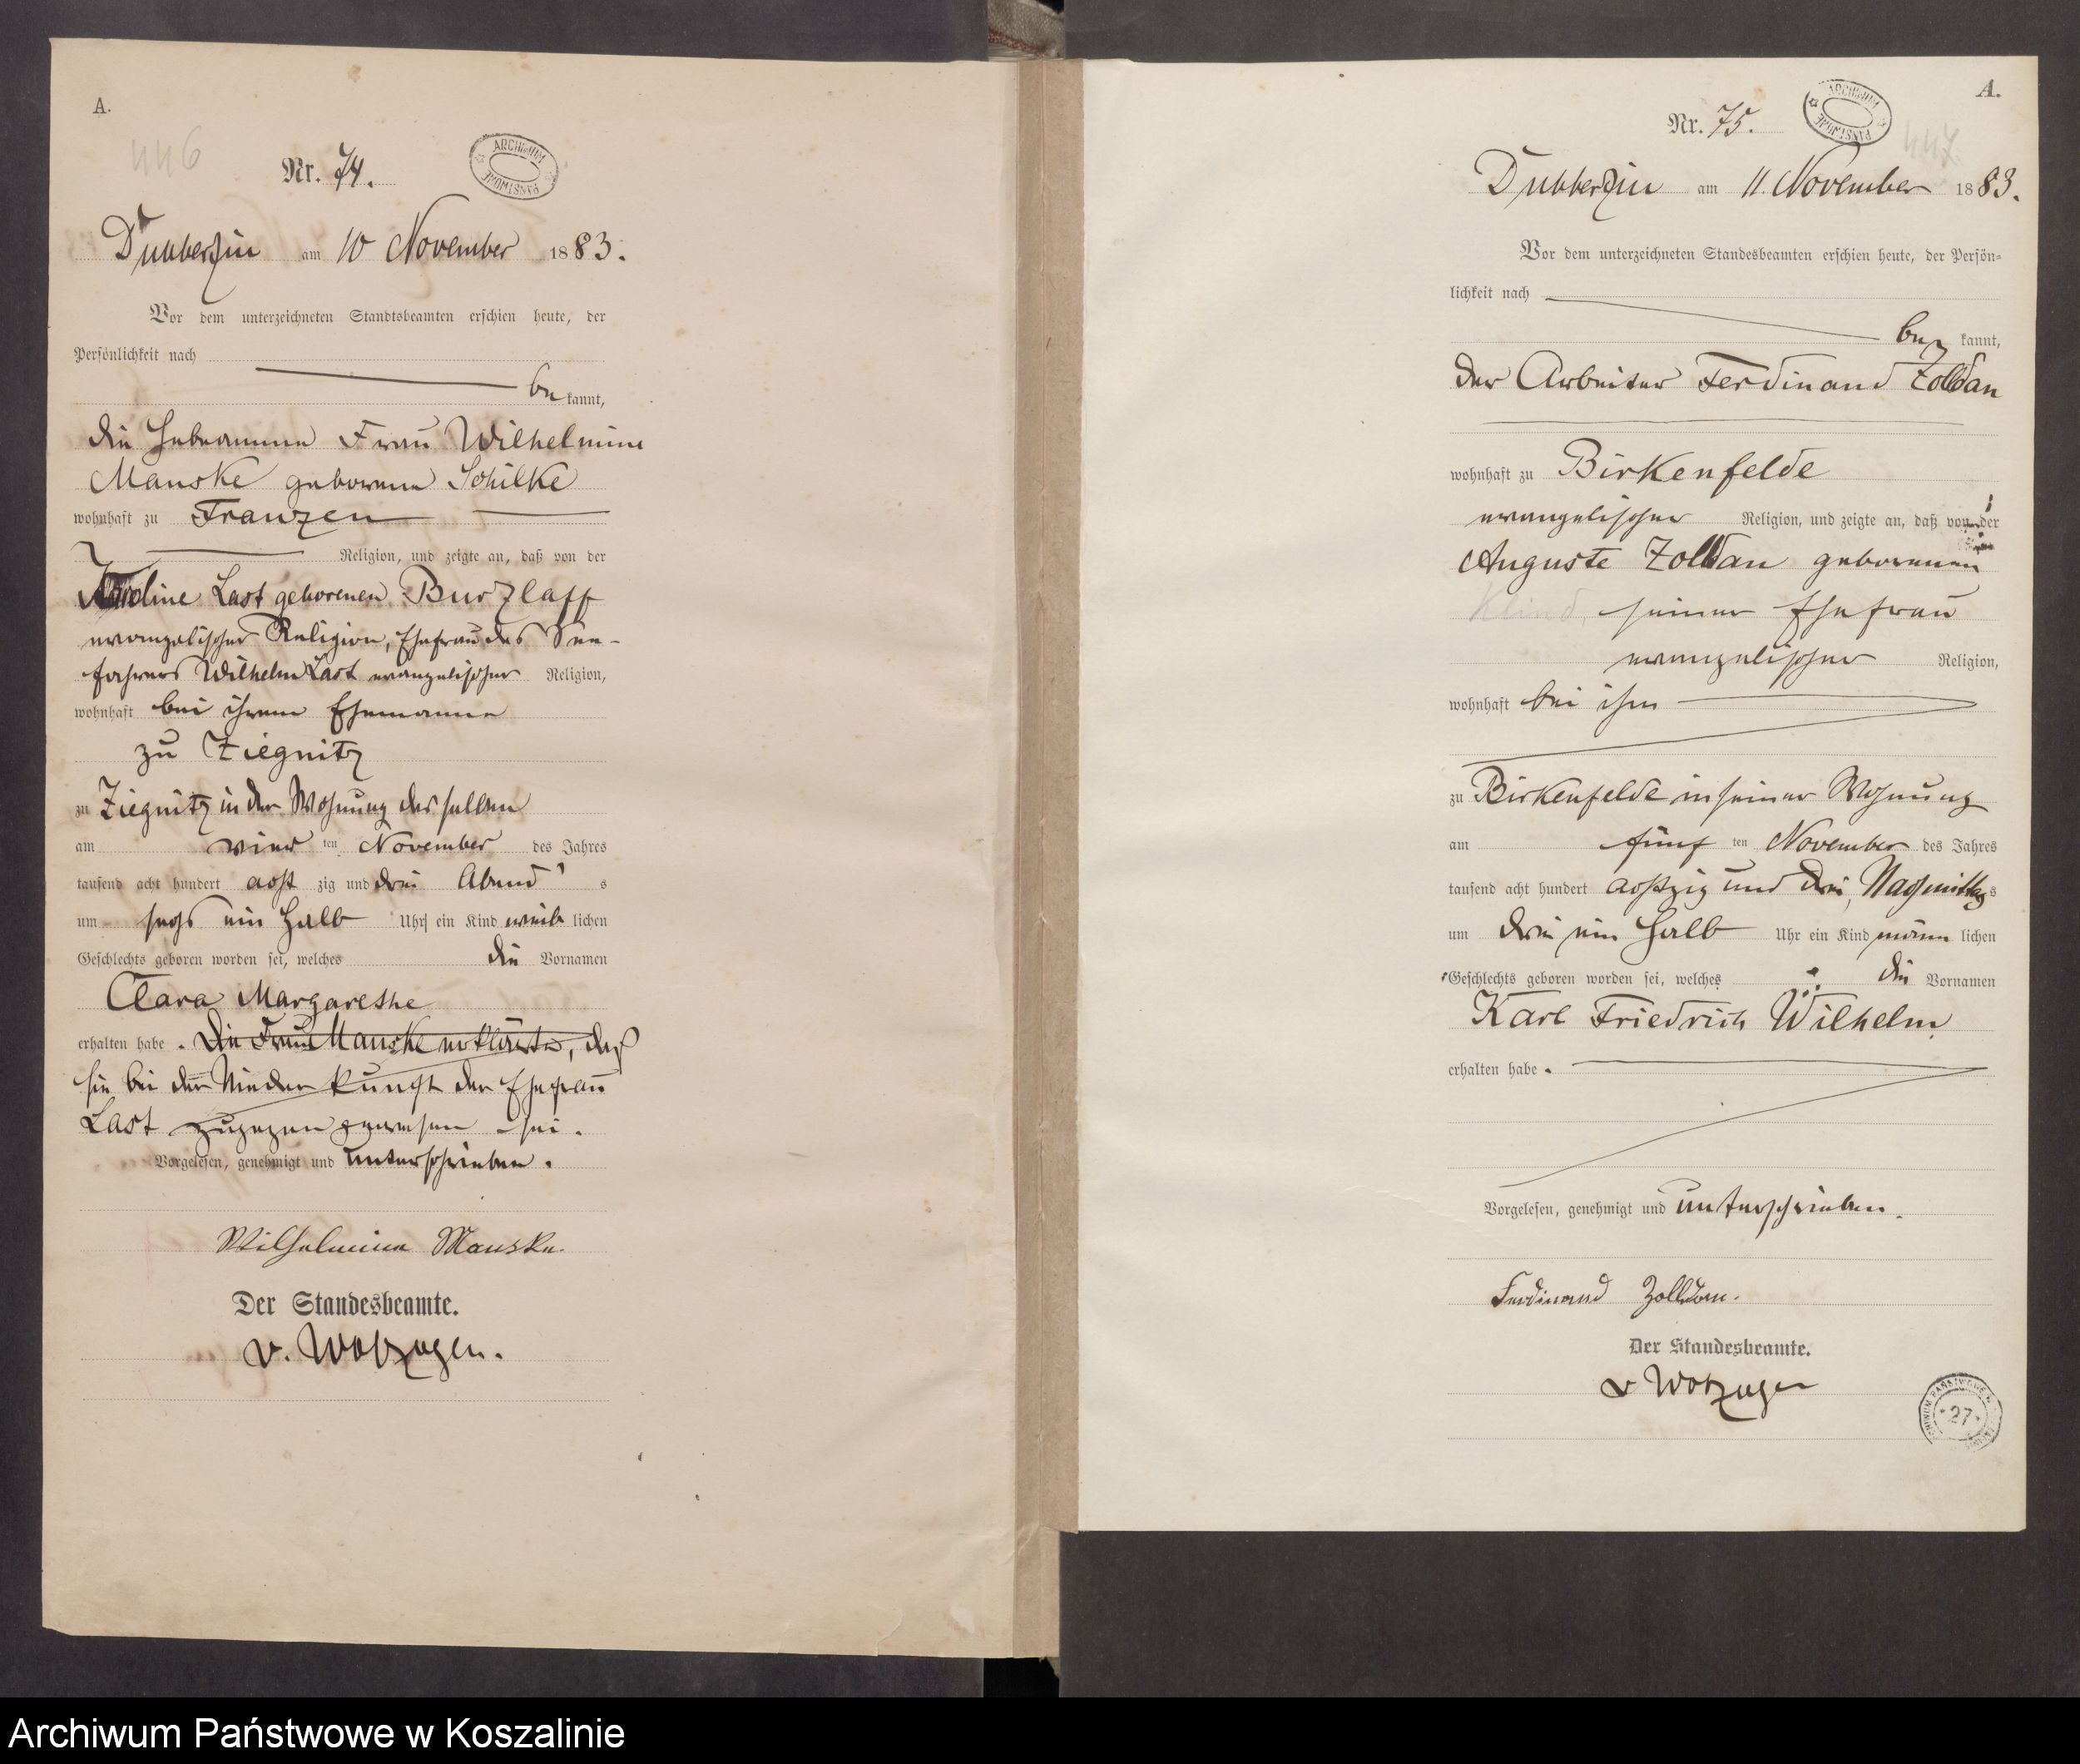 A.
446
Nr. 74.
ARCHIWUM PAŃSTWOWE
Dubberzin am 10 November 1883.
Vor dem unterzeichneten Standtsbeamten erschien heute, der
Persönlichkeit nach
be kannt,
die Hebeamme Frau Wilhelmine
Manske geborene Schilke
wohnhaft zu Franzen
Religion, und zeigte an, daß von der
Karoline Last geborenen Burzlaff
evangelischer Religion, Ehefrau des See-
fahrers Wilhelm Last evangelischer Religion,
wohnhaft bei ihrem Ehemanne
zu Ziegnitz
zu Ziegnitz in der Wohnung desselben
am vier ten November des Jahres
tausend acht hundert acht zig und drei Abend s
um sechs ein halb Uhr ein Kind weib lichen
Geschlechts geboren worden sei, welches die Vornamen
Clara Margarethe
erhalten habe. Die Frau Manske erklärte, daß
sie bei der Niederkunft der Ehefrau
Last zugegen gewesen sei.
Vorgelesen, genehmigt und unterschrieben.
Wilhelmine Manske.
Der Standesbeamte.
v.
A.
Nr. 75.
ARCHIWUM PAŃSTWOWE
447
Dubberzin am 11. November 1883.
Vor dem unterzeichneten Standesbeamten erschien heute, der Persön-
lichkeit nach
be kannt,
der Arbeiter Ferdinand Zolldan
wohnhaft zu Birkenfelde
evangelischer Religion, und zeigte an, daß von der
Auguste Zolldan geborenen
Klind, seiner Ehefrau
evangelischer Religion,
wohnhaft bei ihm
zu Birkenfelde in seiner Wohnung
am fünf ten November des Jahres
tausend acht hundert achtzig und drei, Nachmittags
um drei ein halb Uhr ein Kind männ lichen
Geschlechts geboren worden sei, welches die Vornamen
Karl Friedrich Wilhelm
erhalten habe.
Vorgelesen, genehmigt und unterschrieben.
Ferdinand Zolldan.
Der Standesbeamte.
v
27
Archiwum Państwowe w Koszalinie